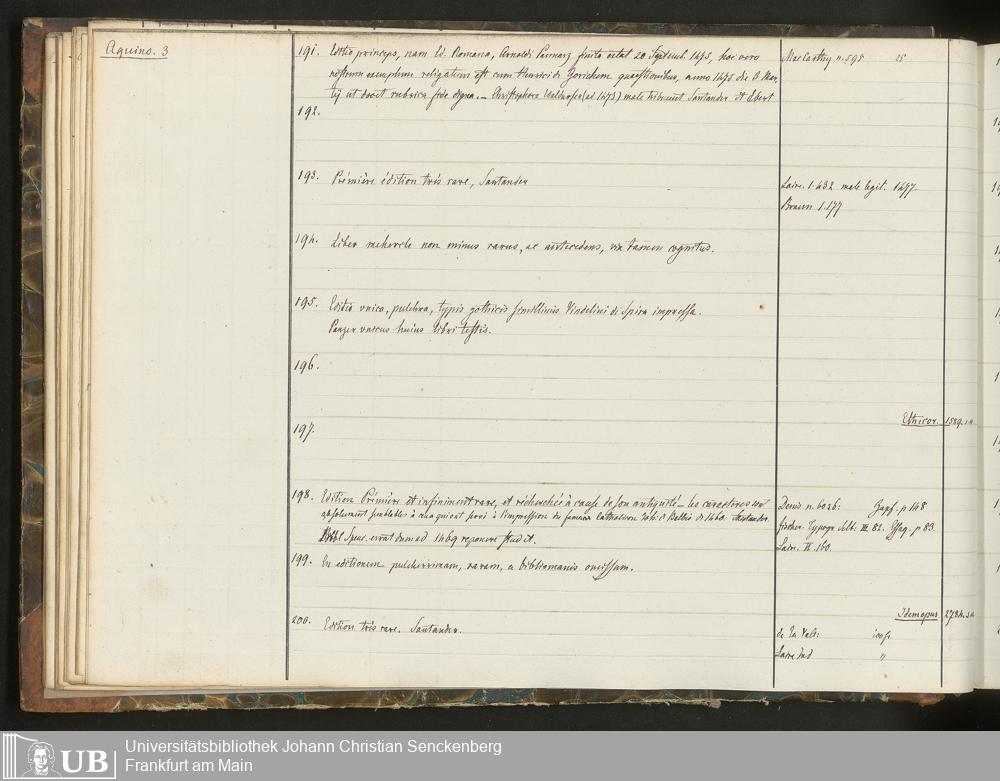 Aquino. 3
191. Editio princeps, nam Ed. Romana, Arnoldi Pannarz finita erat 20 Septemb. 1475, hoc vero
nostrum exemplum religatum est cum Henrici de Gorichem quaestionibus, anno 1475 die 3 Mar-
tij ut docet rubrica fide digna. – Christophoro Valdarfer (ad 1473) male tribuunt Santander et Ebert
MacCarthy n. 595 25
192.
193. Prémière édition très rare, Santander
Laire. 1. 432 male legit. 1477.
Braun 1. 177
194. Liber mehercle non minus rarus, ac antecedens, vix tamen cognitus.
195. Editio unica, pulchra, typis gothicis simillimis Vindelini di Spira impressa.
Panzer unicus huius libri testis.
196.
197.
Ethicor. 1589.
198. Edition Prémière et infiniment rare, et réchérchée à cause de son antiquité – les caractères sont
absolument semblables à ceux qui ont servi à l'impression du fameux Catholicon Joh: d Balbis de 1460. Santander.
Spec. errat dum ad 1469 reponere studet.
Denis n. 6026: Zapf. p 148
fischer. Typogr Selt: III 82. p 83.
Laire. II. 160.
199. En editionem pulcherrimam, raram, a bibliomanis omissam.
Idem opus 2784.
200. Edition très rare. Santander.
de la Vall:
Laire Ind "
UB
Universitätsbibliothek Johann Christian Senckenberg
Frankfurt am Main